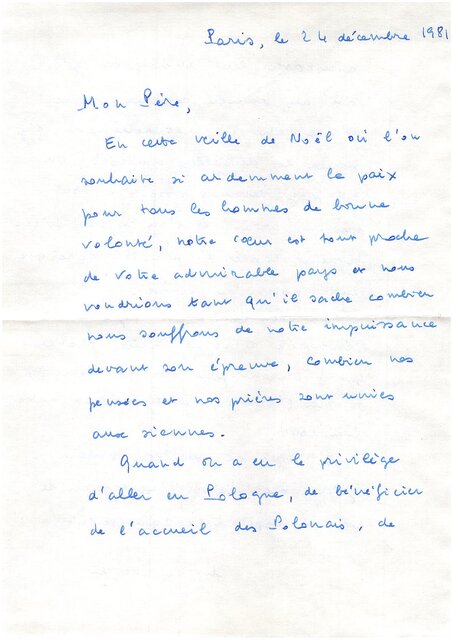 Paris, le 24 décembre 1981
Mon Père,
En cette veille de Noël où l'on
souhaite si ardemment la paix
pour tous les hommes de bonne
volonté, notre cœur est tout proche
de votre admirable pays et nous
voudrions tant qu'il sache combien
nous souffrons de notre impuissance
devant son épreuve, combien nos
pensées et nos prières sont unies
aux siennes.
Quand on a eu le privilège
d'aller en Pologne, de bénéficier
de l'accueil des Polonais, de